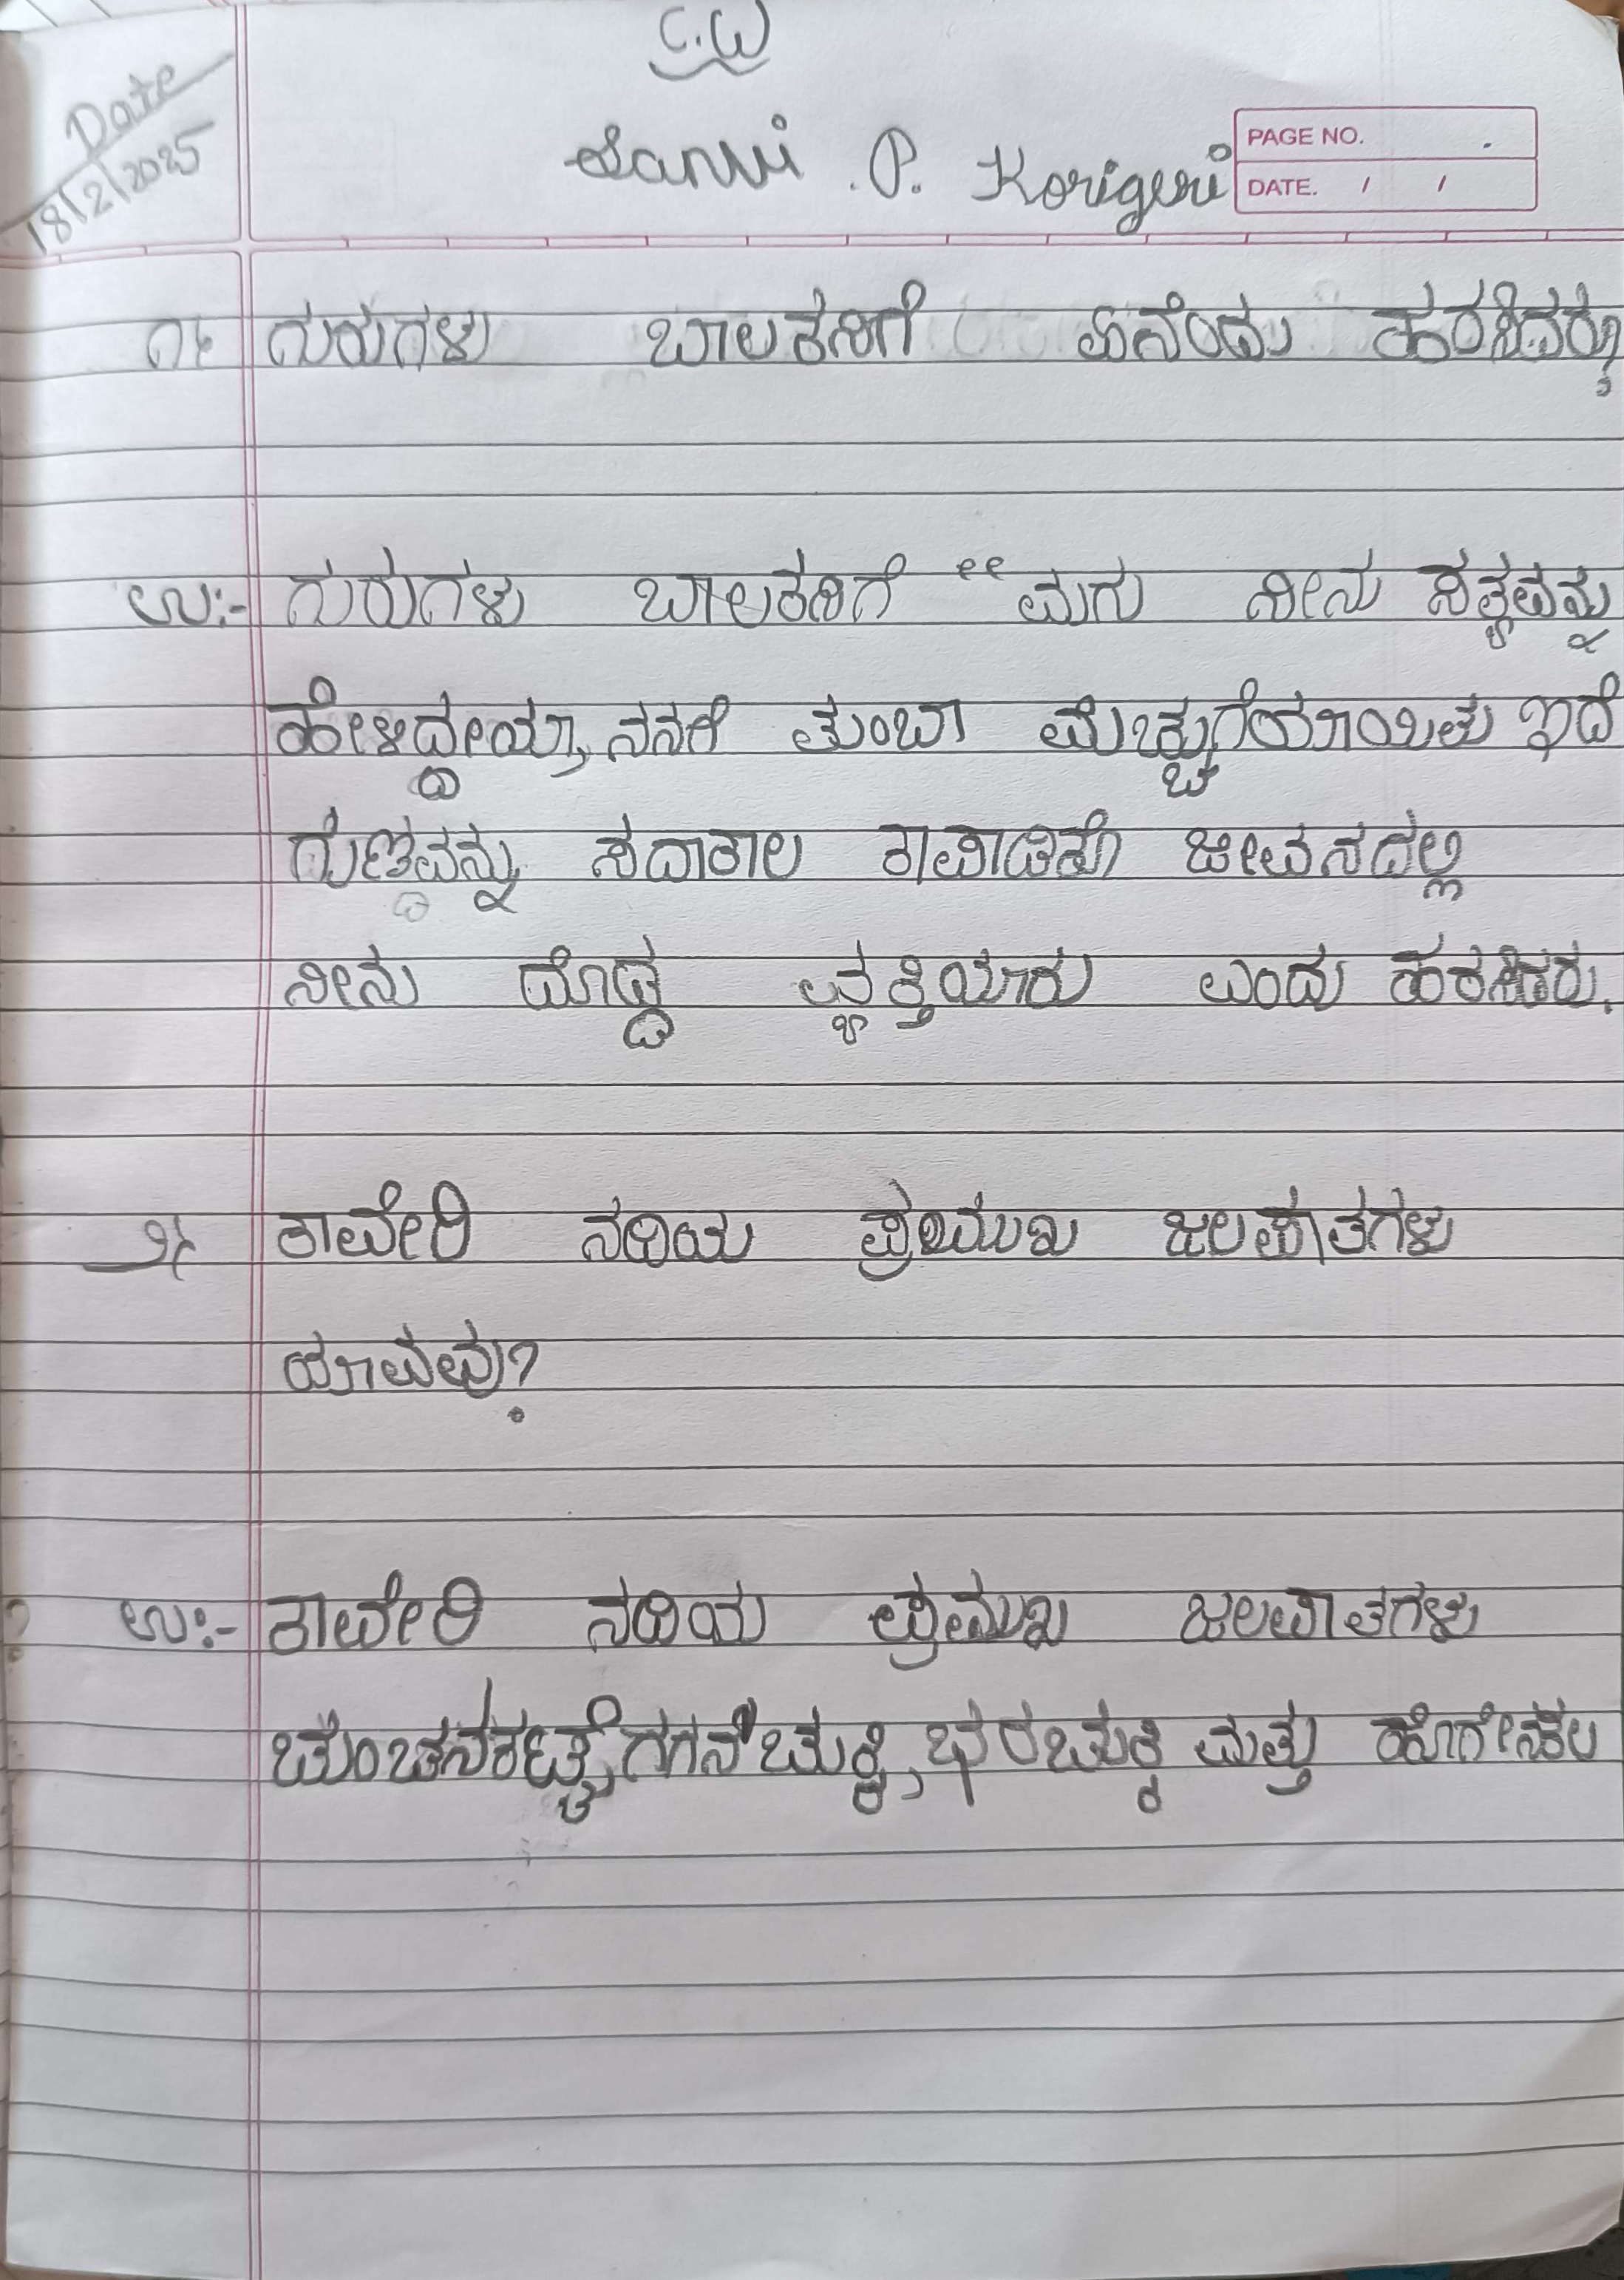 C.W
Date
18/2/2025
Sanvi .P. Korigeri
PAGE NO.
DATE. / /
೧) ಗುರುಗಳು ಬಾಲಕನಿಗೆ ಏನೆಂದು ಹರಸಿದರು?
ಉ:- ಗುರುಗಳು ಬಾಲಕನಿಗೆ "ಮಗು ನೀನು ಸತ್ಯವನ್ನು
ಹೇಳಿದ್ದೀಯಾ, ನನಗೆ ತುಂಬಾ ಮೆಚ್ಚುಗೆಯಾಯಿತು ಇದೆ
ಗುಣವನ್ನು ಸದಾಕಾಲ ಕಾಪಾಡಿಕೊ ಜೀವನದಲ್ಲಿ
ನೀನು ದೊಡ್ಡ ವ್ಯಕ್ತಿಯಾಗು ಎಂದು ಹರಸಿದರು.
೨) ಕಾವೇರಿ ನದಿಯ ಪ್ರಮುಖ ಜಲಪಾತಗಳು
ಯಾವವು?
ಉ:- ಕಾವೇರಿ ನದಿಯ ಪ್ರಮುಖ ಜಲಪಾತಗಳು
ಚುಂಚನಕಟ್ಟೆ, ಗಗನಚುಕ್ಕಿ, ಭರಚುಕ್ಕಿ ಮತ್ತು ಹೊಗೇನಕಲ